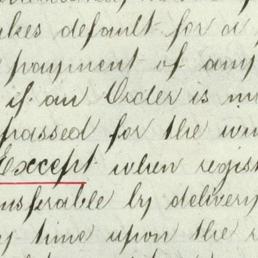 akes default for a
payment of any
if an Order is m
passed for the win
Except when regist
nsferable by delivery
y time upon the